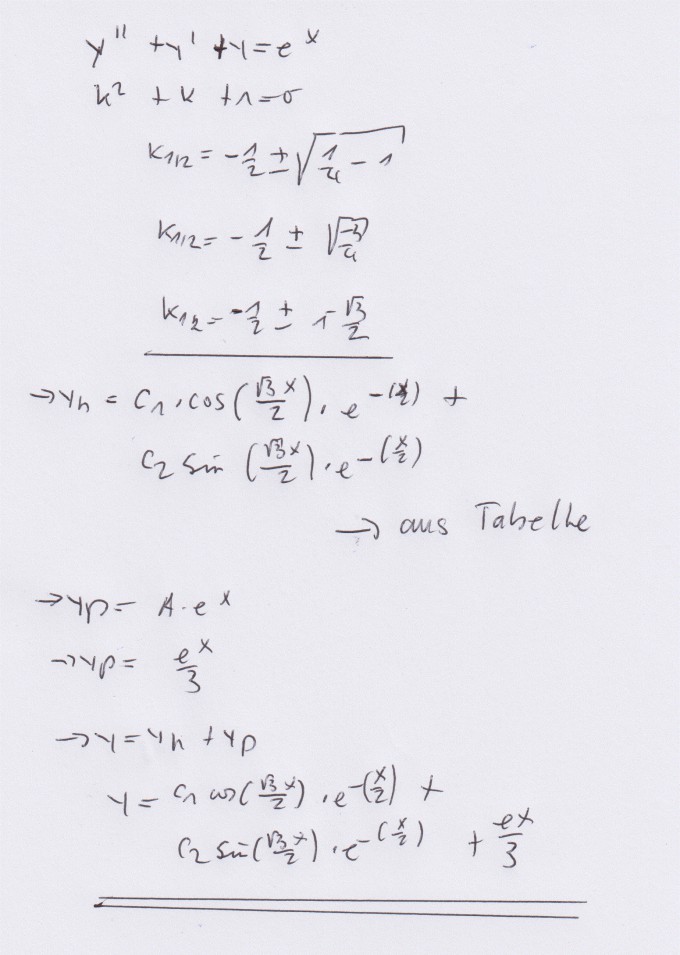 y'' + y' + y = e^x
k² + k + 1 = 0
k₁/₂ = -1/2 ± √(1/4 - 1)
k₁/₂ = -1/2 ± √(-3/4)
k₁₂ = -1/2 ± i √3/2
→ yh = C₁ · cos(√3x/2) · e^-(x/2) +
C₂ sin (√3x/2) · e^-(x/2)
→ aus Tabelle
→ yp = A · e^x
→ yp = e^x/3
→ y = yh + yp
y = C₁ cos(√3x/2) · e^-(x/2) +
C₂ sin(√3x/2) · e^-(x/2) + e^x/3